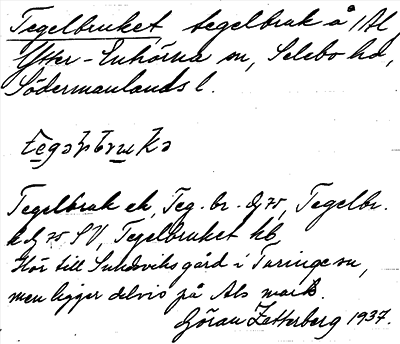 Tegelbruket tegelbruk å Al,
Ytter-Enhörna sn, Selebo hd,
Södermanlands l.
Tegelbruk ek, Teg.br. Tegelbr.
Tegelbruket hb,
Hör till Sundsviks gård i Turinge sn,
men ligger delvis på Als mark.
Göran Zetterberg 1937.